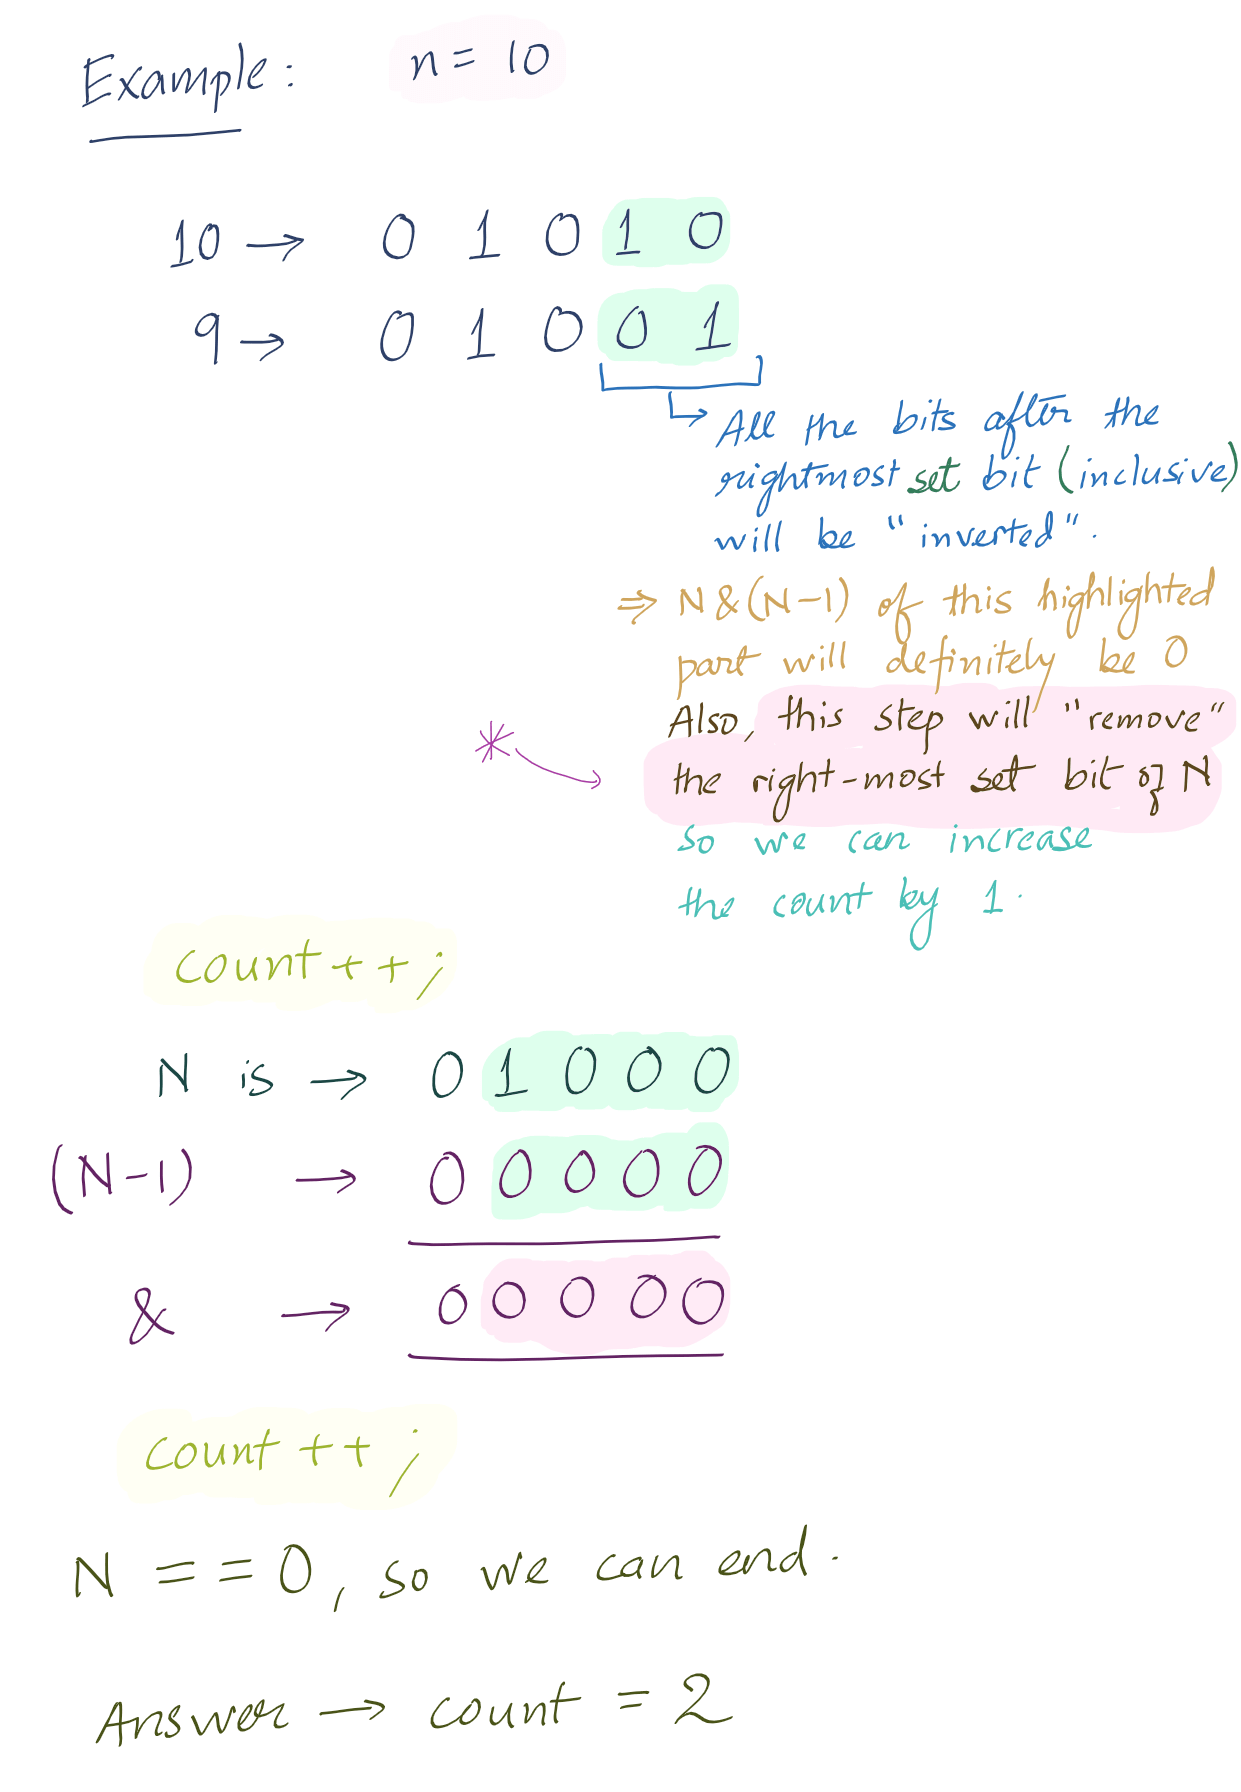 Example: n = 10
10 → 0 1 0 1 0
9 → 0 1 0 0 1
↳ All the bits after the
rightmost set bit (inclusive)
will be "inverted".
⇒ N & (N-1) of this highlighted
part will definitely be 0
Also, this step will "remove"
* → the right-most set bit of N
so we can increase
the count by 1.
count++;
N is → 0 1 0 0 0
(N-1) → 0 0 0 0 0
& → 0 0 0 0 0
count++;
N == 0, so we can end.
Answer → count = 2